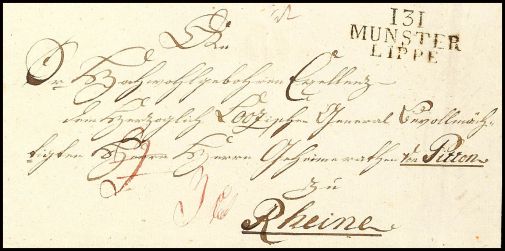 An
131
MUNSTER
LIPPE
Sr. Hochwohlgebohren Excellenz
dem Herzoglich Loozischen General Bevollmäch-
tigten Herrn Geheimerathen von Pitton
zu
Rheine